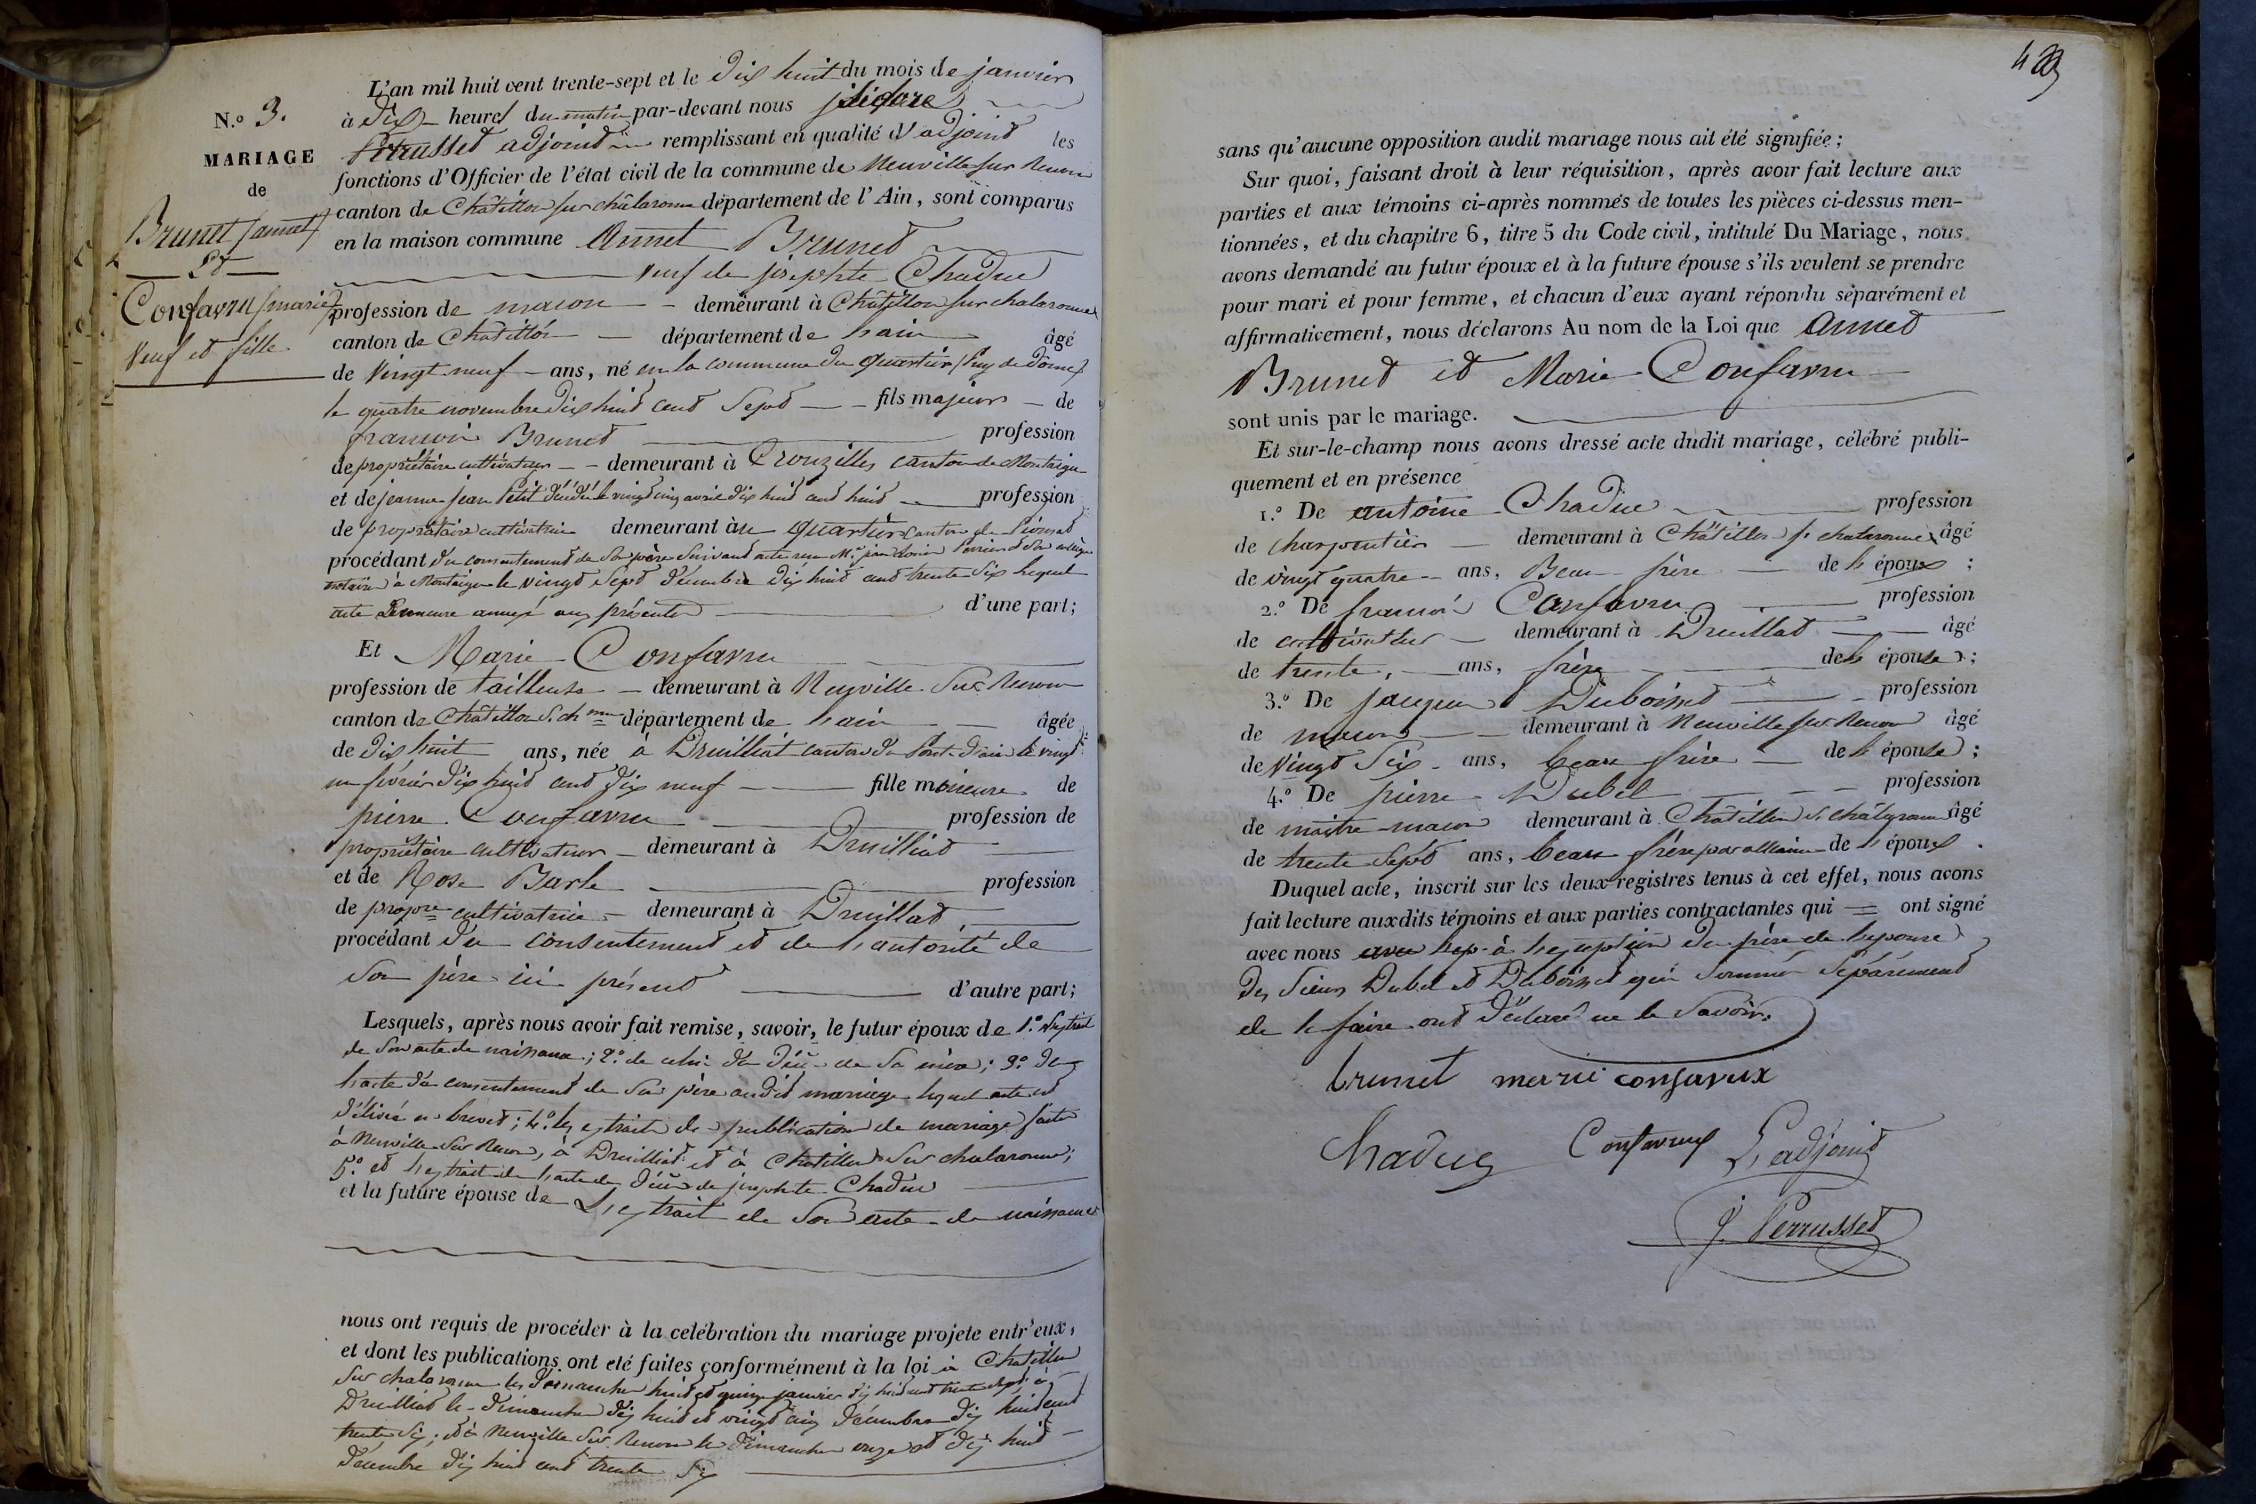 N.o 3.
MARIAGE
de
Brunet (annet)
Et
Confavru (marie)
Veuf et fille
L'an mil huit cent trente-sept et le dix huit du mois de janvier
à dix heures du matin par-devant nous
Perrusset adjoint remplissant en qualité d'adjoint les
fonctions d'Officier de l'état civil de la commune de Neuville sur Renon
canton de Châtillon sur châlaronne département de l'Ain, sont comparus
en la maison commune Annet Brunet
veuf de josephte Chaduc
profession de macon demeurant à Châtillon sur chalaronne
canton de Châtillon département de l'ain âgé
de Vingt neuf ans, né en la commune du quartier (Puy de Dome)
le quatre novembre dix huit cent Sept fils majeur de
francoi Brunet profession
de propriétaire cultivateur demeurant à Crouzilles canton de Montaigu
et de jeanne jean Petit décédé le vingt cinq avril dix huit cent huit profession
de propriétaire cultivatrice demeurant au quartier canton de Pionsat
procédant du consentement de Son père Suivant acte reçu Me jean et Son collègue
notaire à Montaigu le vingt Sept décembre dix huit cent trente Six lequel
acte demeure annexé aux présentes d'une part;
Et Marie Confavru
profession de tailleuse demeurant à Neuville Sur Renon
canton de Châtillon S. ch.nne département de l'ain âgée
de dix huit ans, née à Druilliat canton de Pont d'ain le vingt
un février dix huit cent dix neuf fille mineure de
pierre Confavru profession de
propriétaire cultivateur demeurant à Druilliat
et de Rose Barle profession
de propre cultivatrice demeurant à Druillat
procédant du consentement et de l'autorité de
Son père ici présent d'autre part;
Lesquels, après nous avoir fait remise, savoir, le futur époux de 1.o l'extrait
de Son acte de naissance; 2.o de celui du décè de Sa mère; 3.o de
l'acte du consentement de Son père audit mariage lequel acte est
délivré en brevet; 4.o les extraits de publication de mariage faites
à Neuville Sur Renon, à Druilliat et à Chatillon Sur chalaronne;
5.o et l'extrait de l'acte de décès de josephte Chaduc
et la future épouse de L'extrait de Son acte de naissance
nous ont requis de procéder à la celébration du mariage projeté entr'eux,
et dont les publications ont été faites conformément à la loi à Chatillon
Sur chalaronne les dimanches huit et quinze janvier dix huit cent trente sept à
Druilliat le dimanche dix huit et vingt cinq décembre dix huit cent
trente Six; et à Neuville Sur Renon le dimanche onze et dix huit
décembre dix huit cent trente Six
sans qu'aucune opposition audit mariage nous ait été signifiée;
Sur quoi, faisant droit à leur réquisition, après avoir fait lecture aux
parties et aux témoins ci-après nommés de toutes les pièces ci-dessus men-
tionnées, et du chapitre 6, titre 5 du Code civil, intitulé Du Mariage, nous
avons demandé au futur époux et à la future épouse s'ils veulent se prendre
pour mari et pour femme, et chacun d'eux ayant répondu séparément et
affirmativement, nous déclarons Au nom de la Loi que Annet
Brunet et Marie Confavru
sont unis par le mariage.
Et sur-le-champ nous avons dressé acte dudit mariage, célébré publi-
quement et en présence
1.o De antoine Chaduc profession
de charpentier demeurant à Châtillon s. chalaronne âgé
de vingt quatre ans, Beau frère de l'époux ;
2.o De francoi Confavru profession
de cultivateur demeurant à Druillat âgé
de trente, ans, frère de l'épouse ;
3.o De jacques Duboisset profession
de macon demeurant à Neuville sur Renon âgé
de Vingt Six ans, beau frère de l'épouse ;
4.o De pierre Dubel profession
de maître macon demeurant à Châtillon S. châlaronne âgé
de trente Sept ans, beau frère par alliance de l'époux .
Duquel acte, inscrit sur les deux registres tenus à cet effet, nous avons
fait lecture auxdits témoins et aux parties contractantes qui ont signé
avec nous à l'exception du père de l'épouse
des Sieurs Dubel et Duboisset qui Sommé Séparément
de le faire ont déclaré ne le Savoir.
brunet marie confavrux
Chaduc Confavreux L'adjoint
J. Perrusset